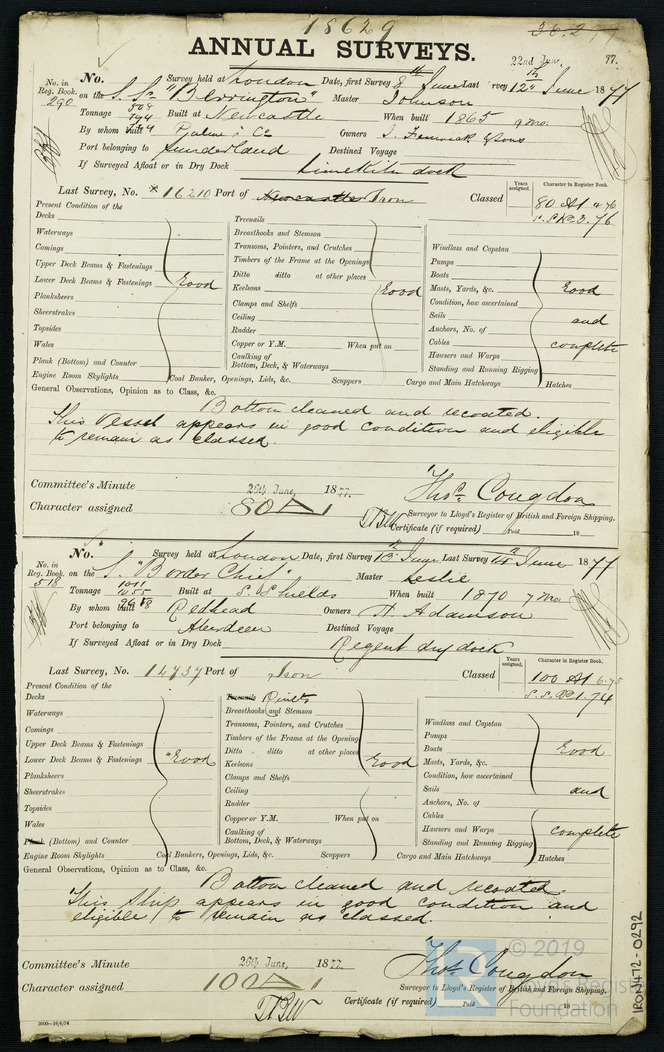 18629
ANNUAL SURVEYS.
22nd June, 77.
No. Survey held at London Date, first Survey 8th June Last Survey 12th June 1877
No. in Reg. Book. 290
on the S. Sr "Berrington" Master Johnson
Tonnage Built at Newcastle When built 1865 9 mo.
By whom built Palmer & Co Owners J. Fenwick & Sons
Port belonging to Sunderland Destined Voyage
If Surveyed Afloat or in Dry Dock Limekiln dock
Last Survey, No. *16210 Port of Newcastle Iron Classed
Years assigned.
Character in Register Book.
80 A1 4-76
Present Condition of the
Decks
Waterways
Comings
Upper Deck Beams & Fastenings
Lower Deck Beams & Fastenings Good
Planksheers
Sheerstrakes
Topsides
Wales
Plank (Bottom) and Counter
Treenails
Breasthooks and Stemson
Transoms, Pointers, and Crutches
Timbers of the Frame at the Openings
Ditto ditto at other places
Keelsons Good
Clamps and Shelfs
Ceiling
Rudder
Copper or Y.M. When put on
Caulking of Bottom, Deck, & Waterways
Windlass and Capstan
Pumps
Boats
Masts, Yards, &c. Good
Condition, how ascertained
Sails and
Anchors, No. of
Cables complete
Hawsers and Warps
Standing and Running Rigging
Engine Room Skylights Coal Bunker, Openings, Lids, &c. Scuppers Cargo and Main Hatchways Hatches
General Observations, Opinion as to Class, &c.
Bottom cleaned and recoated.
This Vessel appears in good condition and eligible
to remain as classed.
Committee's Minute 26th June, 1877.
Character assigned 80 A 1
Thos. Congdon
Surveyor to Lloyd's Register of British and Foreign Shipping.
Certificate (if required) Paid 18
No. Survey held at London Date, first Survey 13th June Last Survey 14th June 1877
No. in Reg. Book. 518
on the S. "Border Chief" Master Leslie
Tonnage Built at S. Shields When built 1870 7 mo.
By whom built Redhead Owners H. Adamson
Port belonging to Aberdeen Destined Voyage
If Surveyed Afloat or in Dry Dock Regent dry dock
Last Survey, No. 14737 Port of Iron Classed
Years assigned.
Character in Register Book.
100 A1 6-75
Present Condition of the
Decks
Waterways
Comings
Upper Deck Beams & Fastenings
Lower Deck Beams & Fastenings Good
Planksheers
Sheerstrakes
Topsides
Wales
Plank (Bottom) and Counter
Treenails Rivets
Breasthooks and Stemson
Transoms, Pointers, and Crutches
Timbers of the Frame at the Opening
Ditto ditto at other places
Keelsons Good
Clamps and Shelfs
Ceiling
Rudder
Copper or Y.M. When put on
Caulking of Bottom, Deck, & Waterways
Windlass and Capstan
Pumps
Boats Good
Masts, Yards, &c.
Condition, how ascertained
Sails and
Anchors, No. of
Cables
Hawsers and Warps complete
Standing and Running Rigging
Engine Room Skylights Coal Bunkers, Openings, Lids, &c. Scuppers Cargo and Main Hatchways Hatches
General Observations, Opinion as to Class, &c.
Bottom cleaned and recoated.
This Ship appears in good condition and
eligible to remain as classed.
Committee's Minute 26th June, 1877.
Character assigned 100 A 1
Thos. Congdon
Surveyor to Lloyd's Register of British and Foreign Shipping.
Certificate (if required) Paid 18
© 2019
Lloyd's Register
Foundation
IRON472-0292